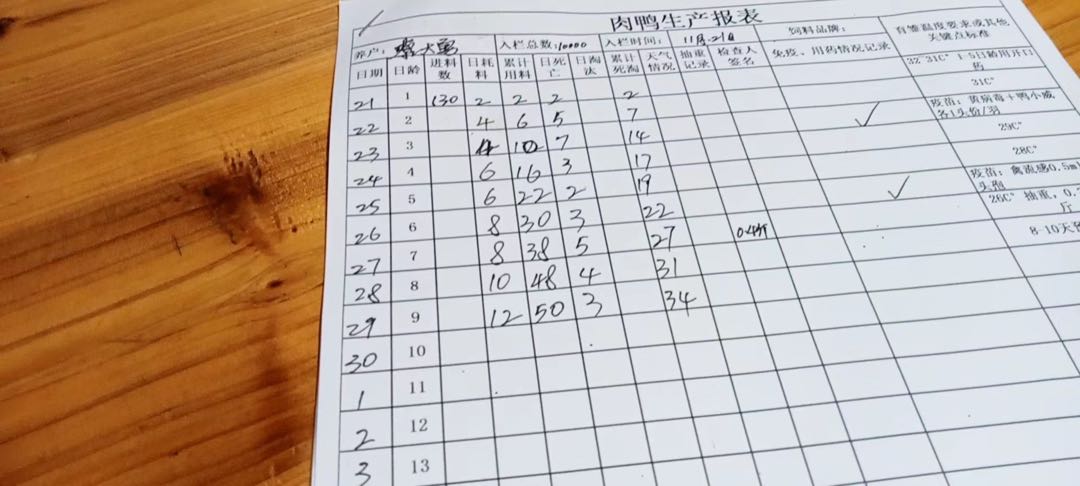 肉鸭生产报表
养户： 蔡大勇 入栏总数：10000 入栏时间： 11月21日 饲料品牌： 育雏温度要求或其他关键点标准
日期 日龄 进料数 日耗料 累计用料 日死亡 日淘汰 累计死淘 天气情况 抽重记录 检查人签名 免疫、用药情况记录
21 1 130 2 2 2 2 32-31C° 1-5日龄用开口药
22 2 4 6 5 7 31C°
23 3 4 10 7 14 ✓ 疫苗：黄病毒+鸭小威各1头份/羽
24 4 6 16 3 17 29C°
25 5 6 22 2 19 28C°
26 6 8 30 3 22 ✓ 疫苗：禽流感0.5m
27 7 8 38 5 27 0.4斤 26C° 抽重，0. 斤
28 8 10 48 4 31 8-10天
29 9 12 50 3 34
30 10
1 11
2 12
3 13